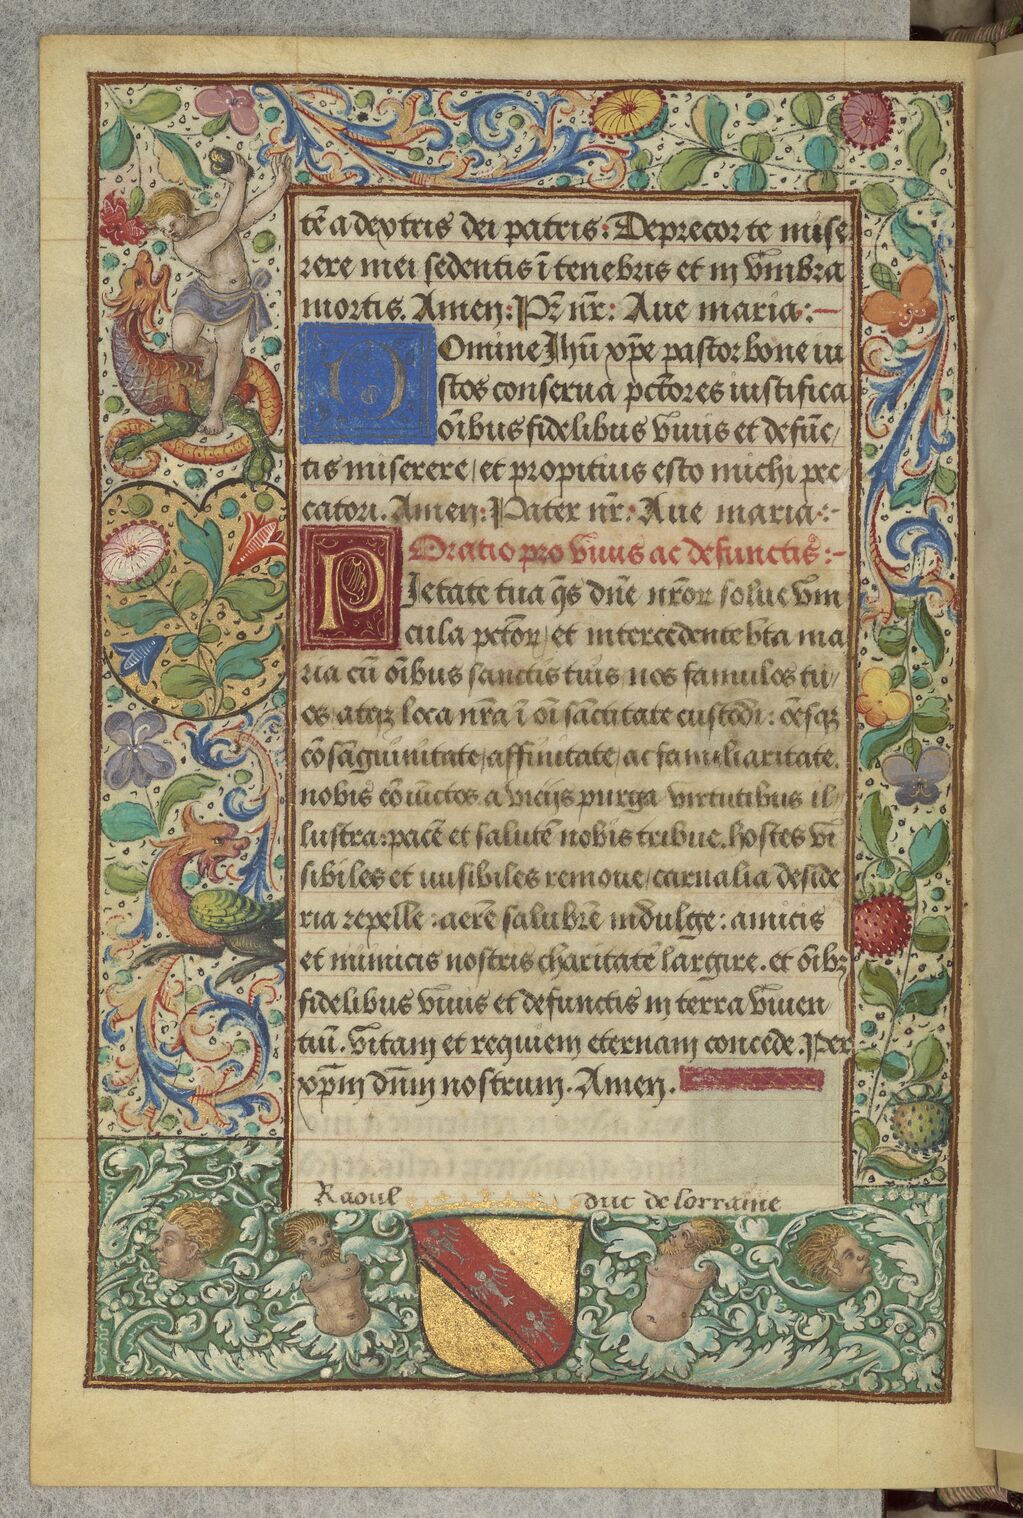 tē a dextris dei patris: Deprecor te mise
rere mei sedentis ī tenebris et in vmbra
mortis. Amen: Pr̄ nr̄: Aue maria:
Domine Jhū xp̄e pastor bone iu
stos conserua pctōres iustifica
oībus fidelibus viuis et defūc/
tis miserere/ et propitius esto michi pec
catori. Amen: Pater nr̄: Aue maria:
Oratio pro viuis ac defunctis:
Pietate tua q̄s dn̄e nr̄oꝝ solue vin
cula pctōꝝ/ et intercedente bt̄a ma
ria cū oībus sanctis tuis nos famulos tu/
os atqꝫ loca nr̄a ī oī sāctitate custodi: oēsqꝫ
cōsāguinitate/ affinitate/ ac familiaritate.
nobis cōiūctos a vicijs purga virtutibus il/
lustra: pacē et salutē nobis tribue. hostes vi
sibiles et inuisibiles remoue/ carnalia deside
ria repelle: aerē salubrē indulge: amicis
et inimicis nostris charitatē largire. et oībꝫ
fidelibus viuis et defunctis in terra viuen
tiū. vitam et requiem eternam concede. Per
xp̄m dn̄m nostrum. Amen.
Raoul duc de lorraine